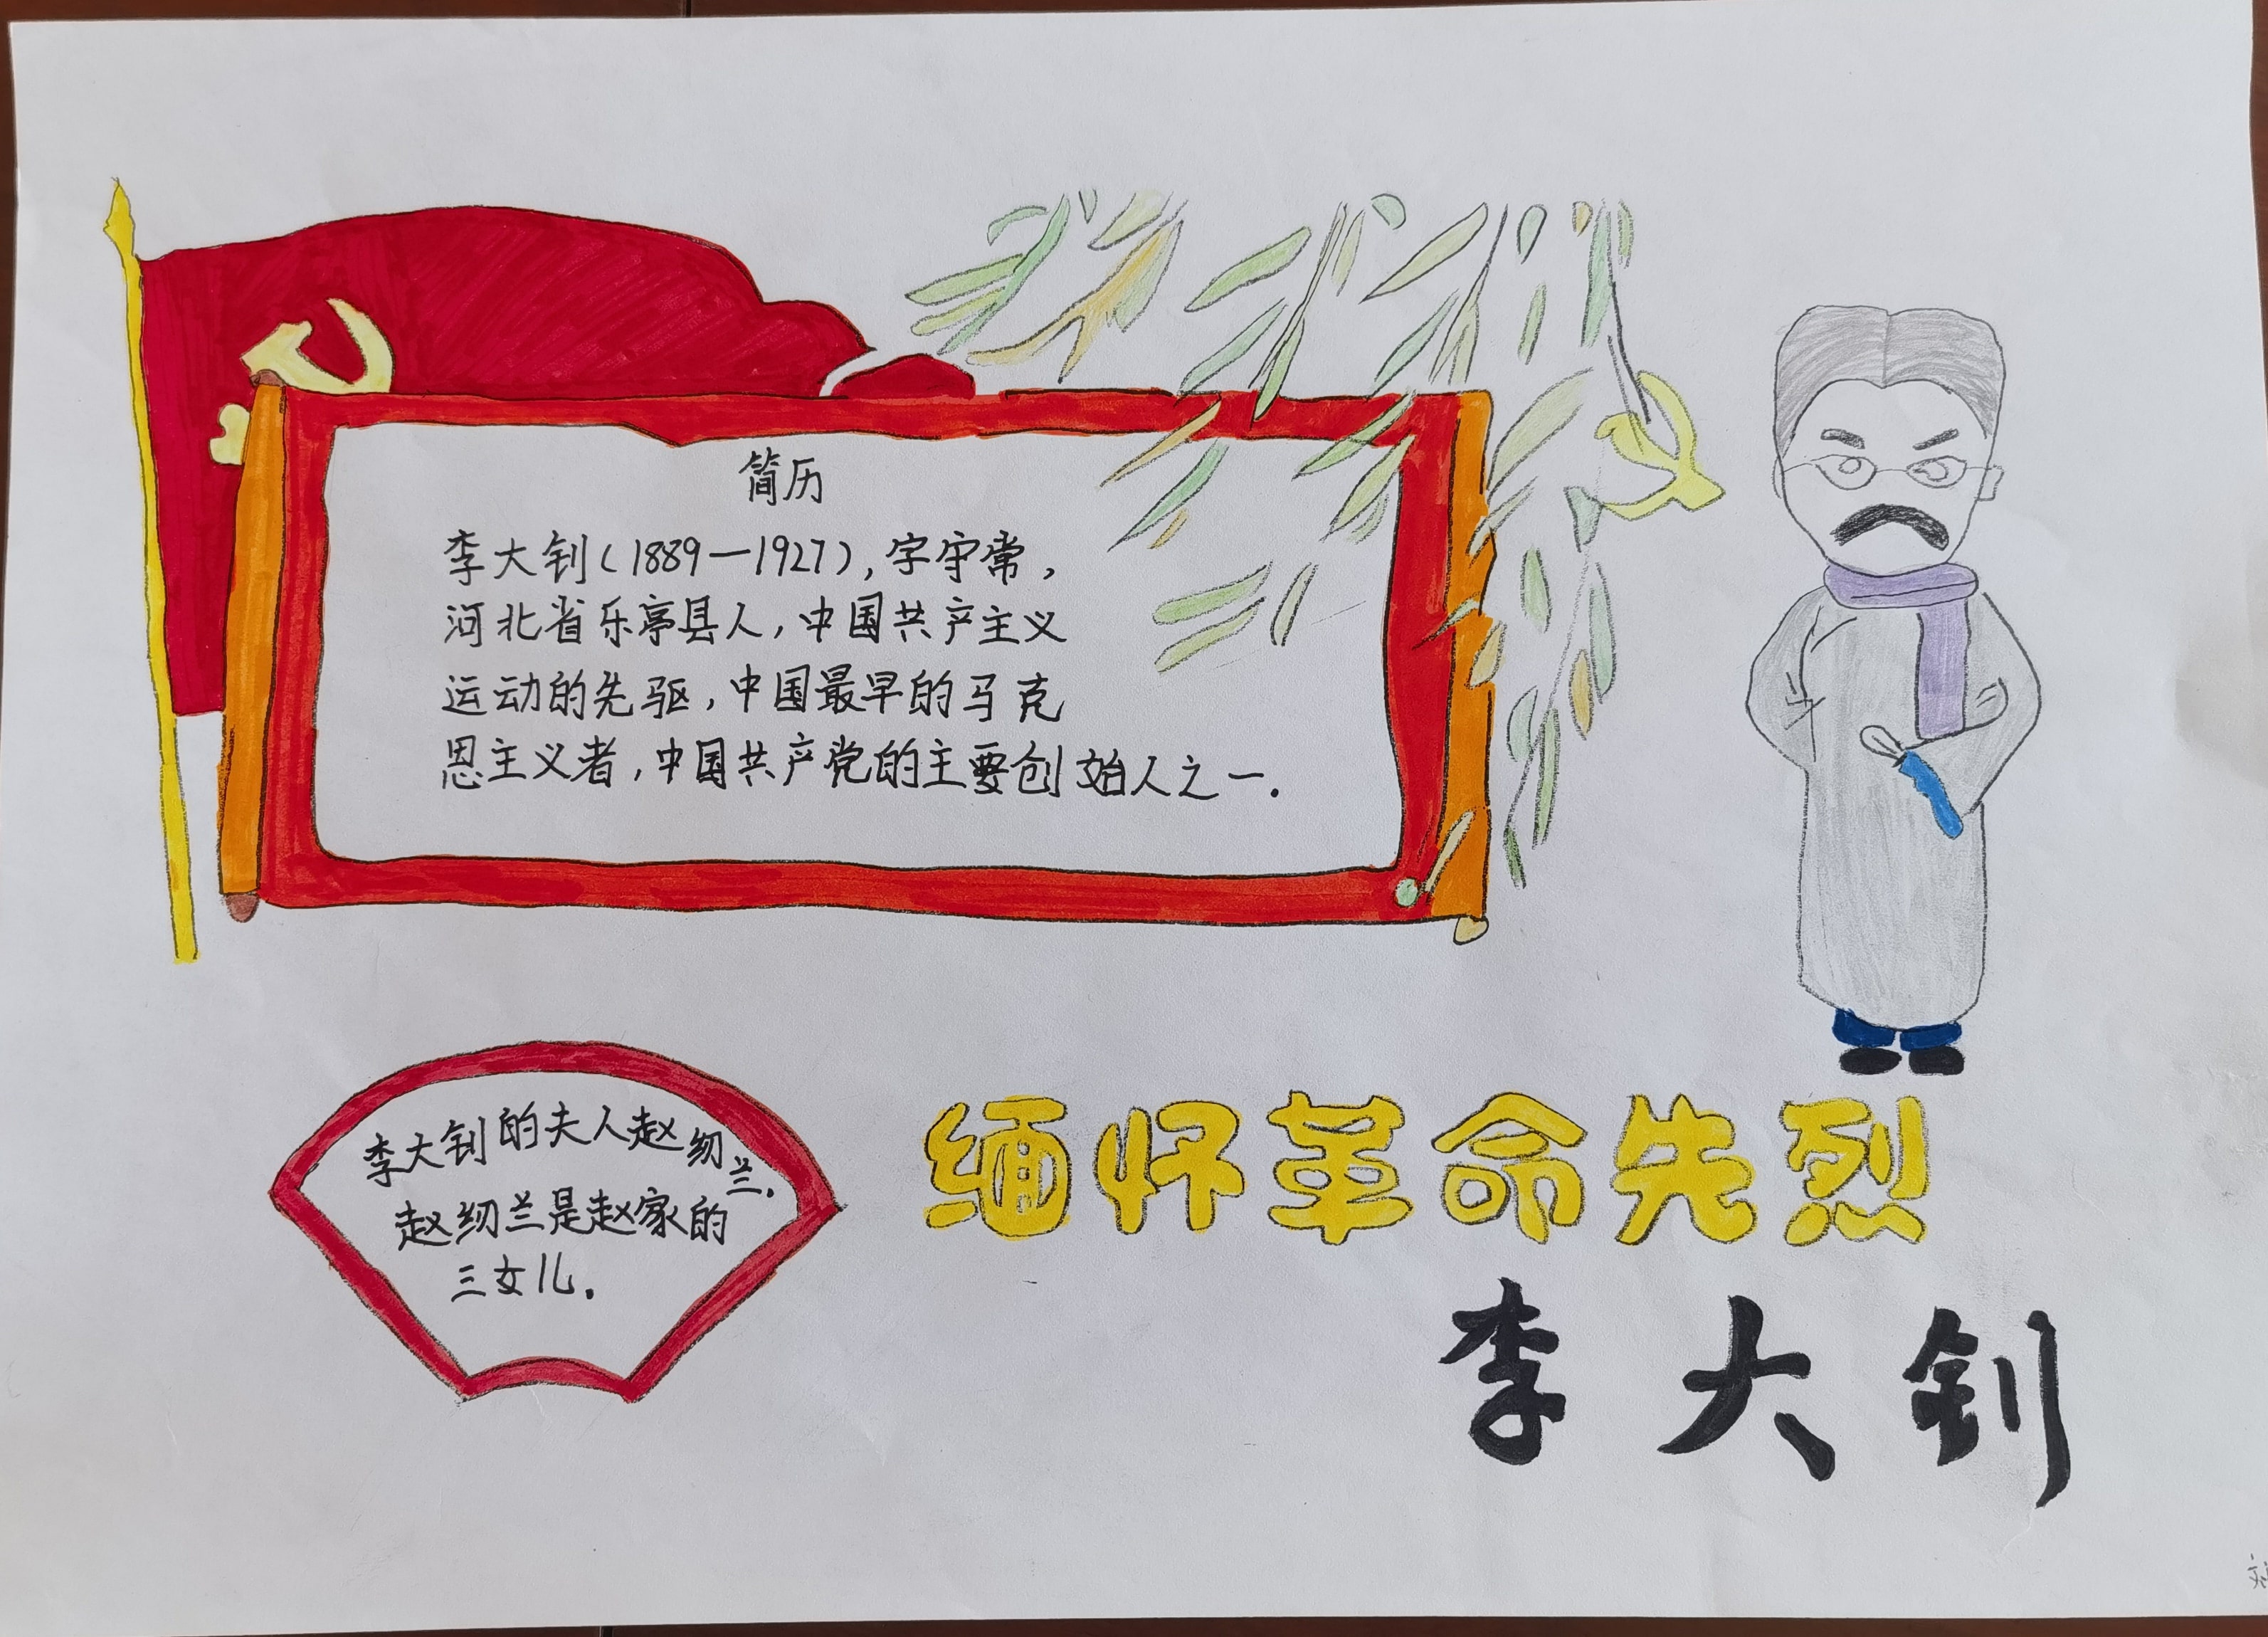 简历
李大钊(1889—1927),字守常,
河北省乐亭县人,中国共产主义
运动的先驱,中国最早的马克
思主义者,中国共产党的主要创始人之一.
李大钊的夫人赵纫兰.
赵纫兰是赵家的
三女儿.
缅怀革命先烈
李大钊